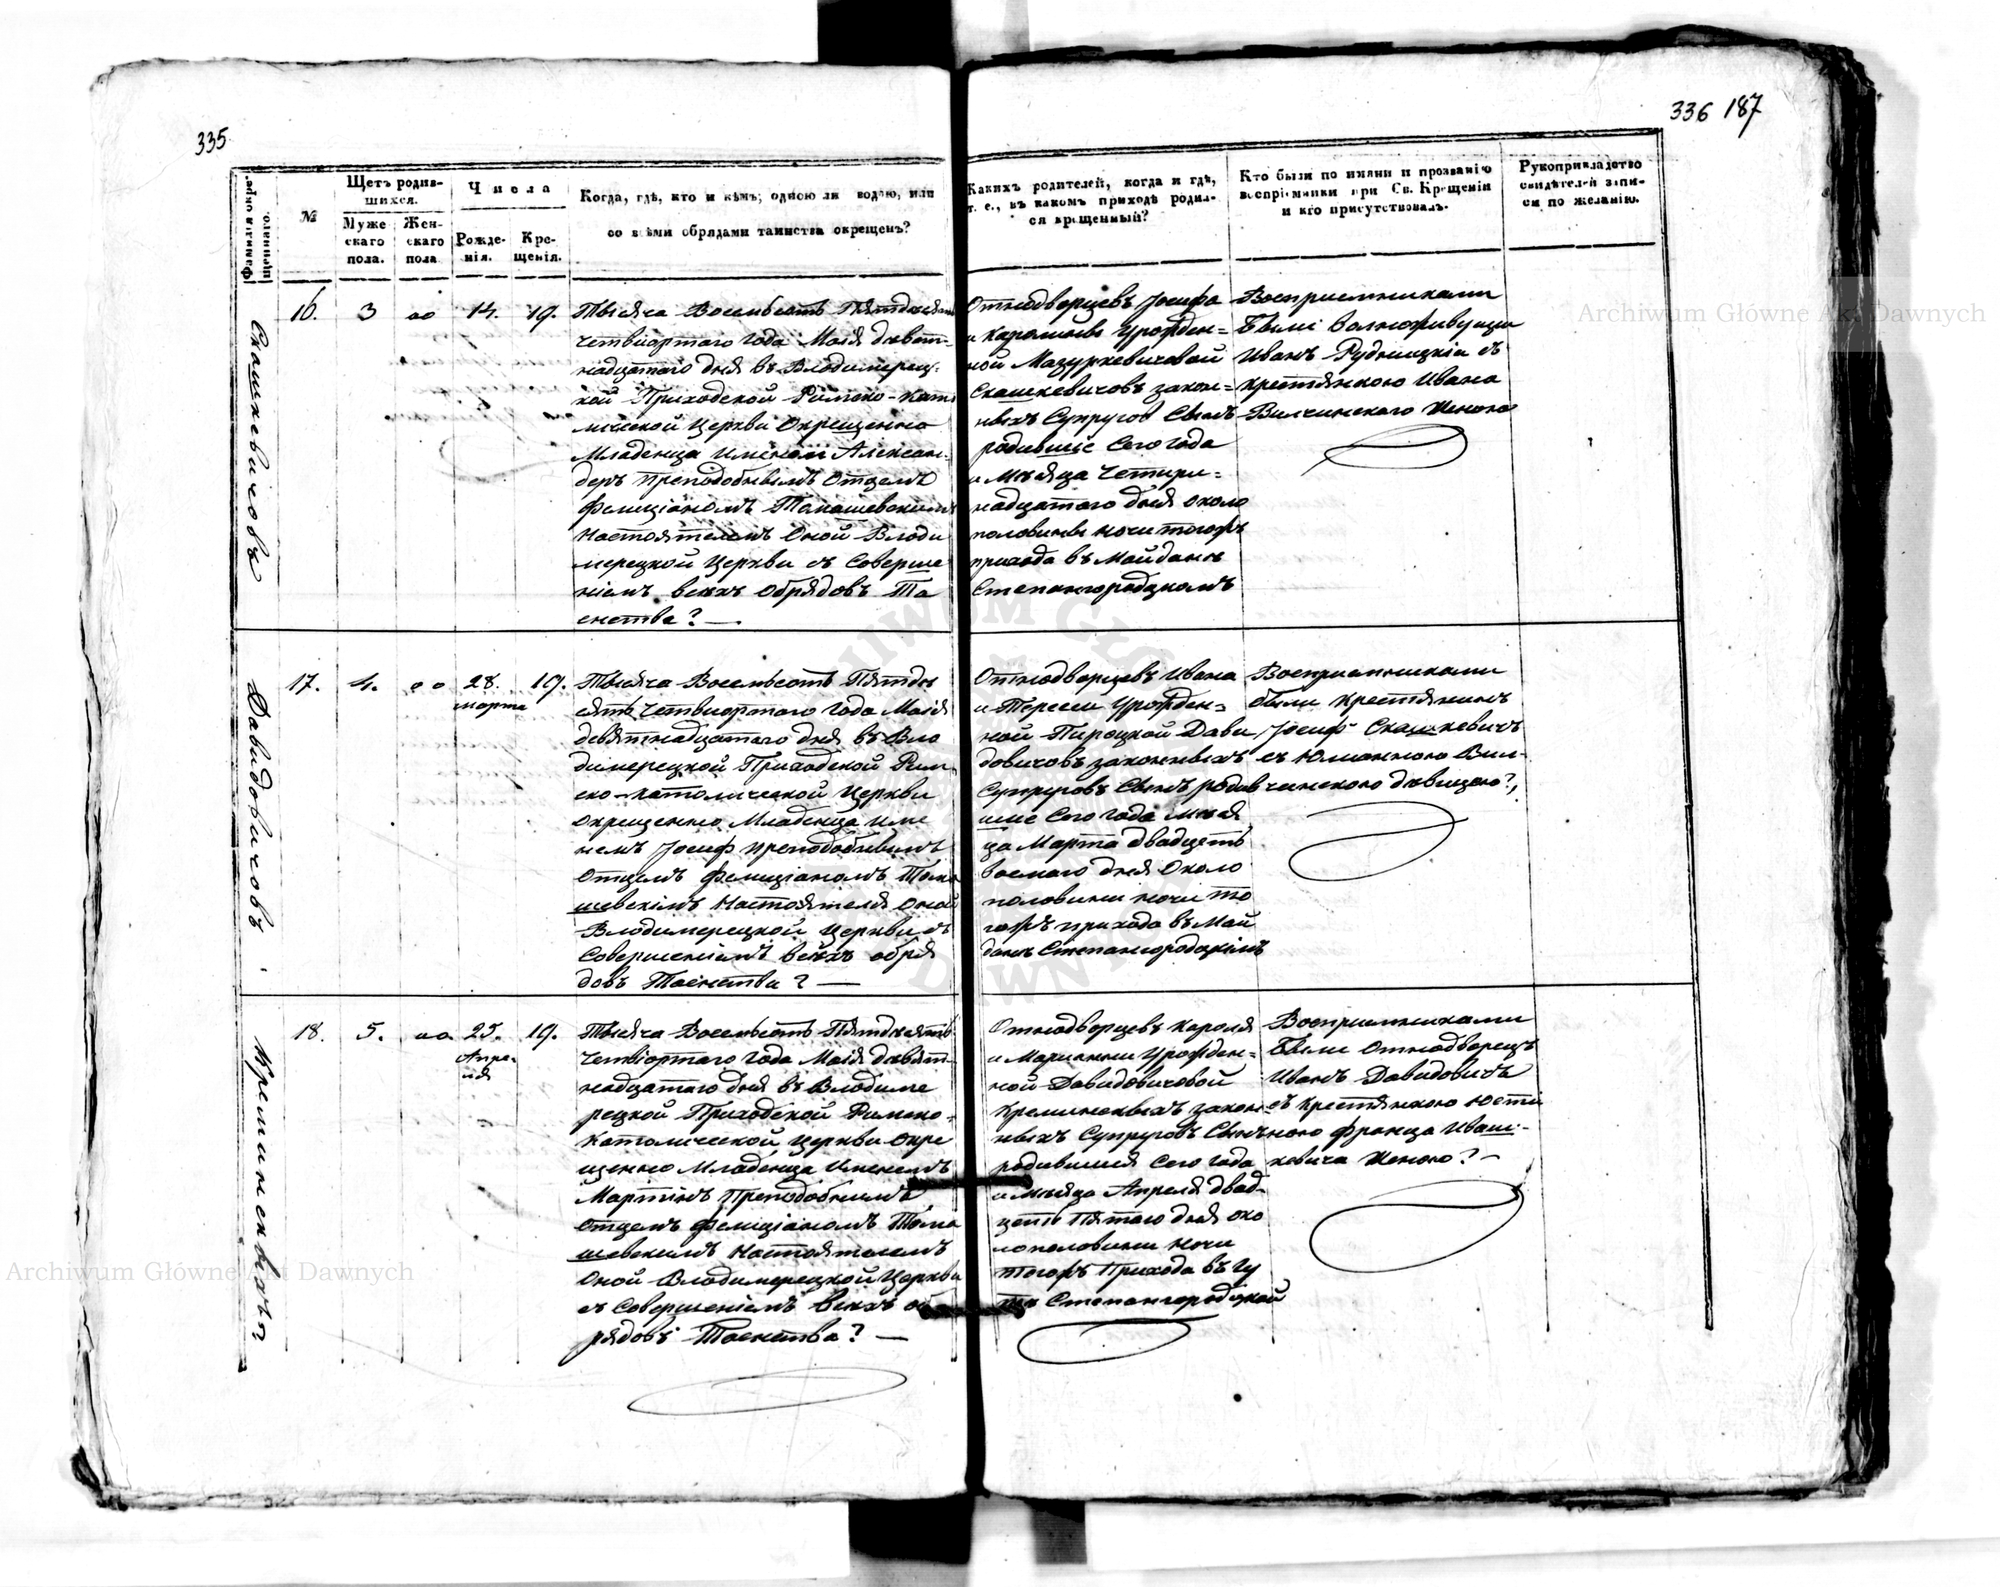 335
336 187
Фамилія окре-
щеннаго.
№
Щетъ родив-
шихся.
Муже
скаго
пола.
Жен-
скаго
пола
Числа
Рожде-
нія.
Кре-
щенія.
Когда, гдѣ, кто и кѣмъ; одною ли водою, или
со всѣми обрядами таинства окрещенъ?
Какихъ родителей, когда и гдѣ,
т. е., въ какомъ приходѣ родил-
ся крещенный?
Кто были по имяни и прозванію
воспріемники при Св. Крещеніи
и кто присутствовалъ.
Рукоприкладство
свидѣтелей запи-
си по желанію.
Скашкевичовъ
16. 3 " " 14. 19.
Тысяча Восемьсотъ Пятдесят
четвіортаго года Маія девят-
надцатаго дня въ Влодимерец-
кой Приходской Римско-Като
лической Церкви Окрещенно
Младенца именем Алексан-
деръ Преподобнымъ Отцемъ
Фелиціаномъ Томашевскимъ
Настоятелемъ Оной Влоди
мерецкой Церкви съ Соверше
ніемъ всехъ Обрядовъ Та
енства? —
Отнодворцевъ Іосифа
и Каролины Урожден=
ной Мазуркевичовой
Скашкевичовъ закон=
ныхъ Супругов Сынъ
родившіе Сего года
и Мѣсяца Четири=
надцатаго дня около
половины ночи тогожъ
прихода въ Майдане
Степангородцкомъ
Восприемниками
Были Вольноживущи
Иванъ Рудницкіи съ
крестянкою Ивана
Вилчинскаго Женою
Давидовичовъ
17. 4. " " 28. 19.
марта
Тысяча Восемьсотъ Пятде
сятъ Четвиортаго года Маія
девятнадцатаго дня въ Вло
димерецкой Приходской Рим
ско-католической Церкви
Окрещенно Младенца име
немъ Іосиф преподобнымъ
Отцемъ Фелиціаномъ Тома
шевскімъ Настоятеля Оной
Влодимерецкой Церкви съ
Совершеніемъ всехъ обря
довъ Таенства? —
Отнодворцевъ Ивана
и Тересы Урожден=
ной Пироцкой Дави
довичовъ законныхъ
Супруговъ Сынъ родив
шіе Сего года Мѣся
ца Марта двадцеть
восмаго дня Около
половини ночи то
гожъ прихода въ Май
дане Степангородцкімъ
Восприемниками
были Крестянинъ
Іосиф Скашкевичъ
съ Юлианною Вил-
чинскою девицею?,
Креминскихъ
18. 5. " " 25. 19.
Апре-
ля
Тысяча Восемьсотъ Пятдесятъ
Четвіортаго года Маія девят-
надцатаго дня въ Влодиме
рецкой Приходской Римско-
Католической Церкви Окре
щенно Младенца Именемъ
Мартінъ Преподобнимъ
Отцемъ Фелиціаномъ Тома
шевскимъ Настоятелемъ
Оной Влодимерецкой Церкви
съ Совершеніемъ всехъ об
рядовъ Таенства? —
Отнодворцевъ Кароля
и Марианни Урожден=
ной Давидовичовой
Креминскихъ закон
ныхъ Супруговъ Сынъ
родившія Сего года
и Мѣяца Апреля двад-
цеть Пятаго дня око
ло половини ночи
тогожъ Прихода въ Гу
те Степангородцкой
Восприемниками
Были Отнодворецъ
Иванъ Давидовичъ
съ Крестянкою Юсти
ною Франца Иваш-
кевича Женою? —
Archiwum Główne Akt Dawnych
Archiwum Główne Akt Dawnych